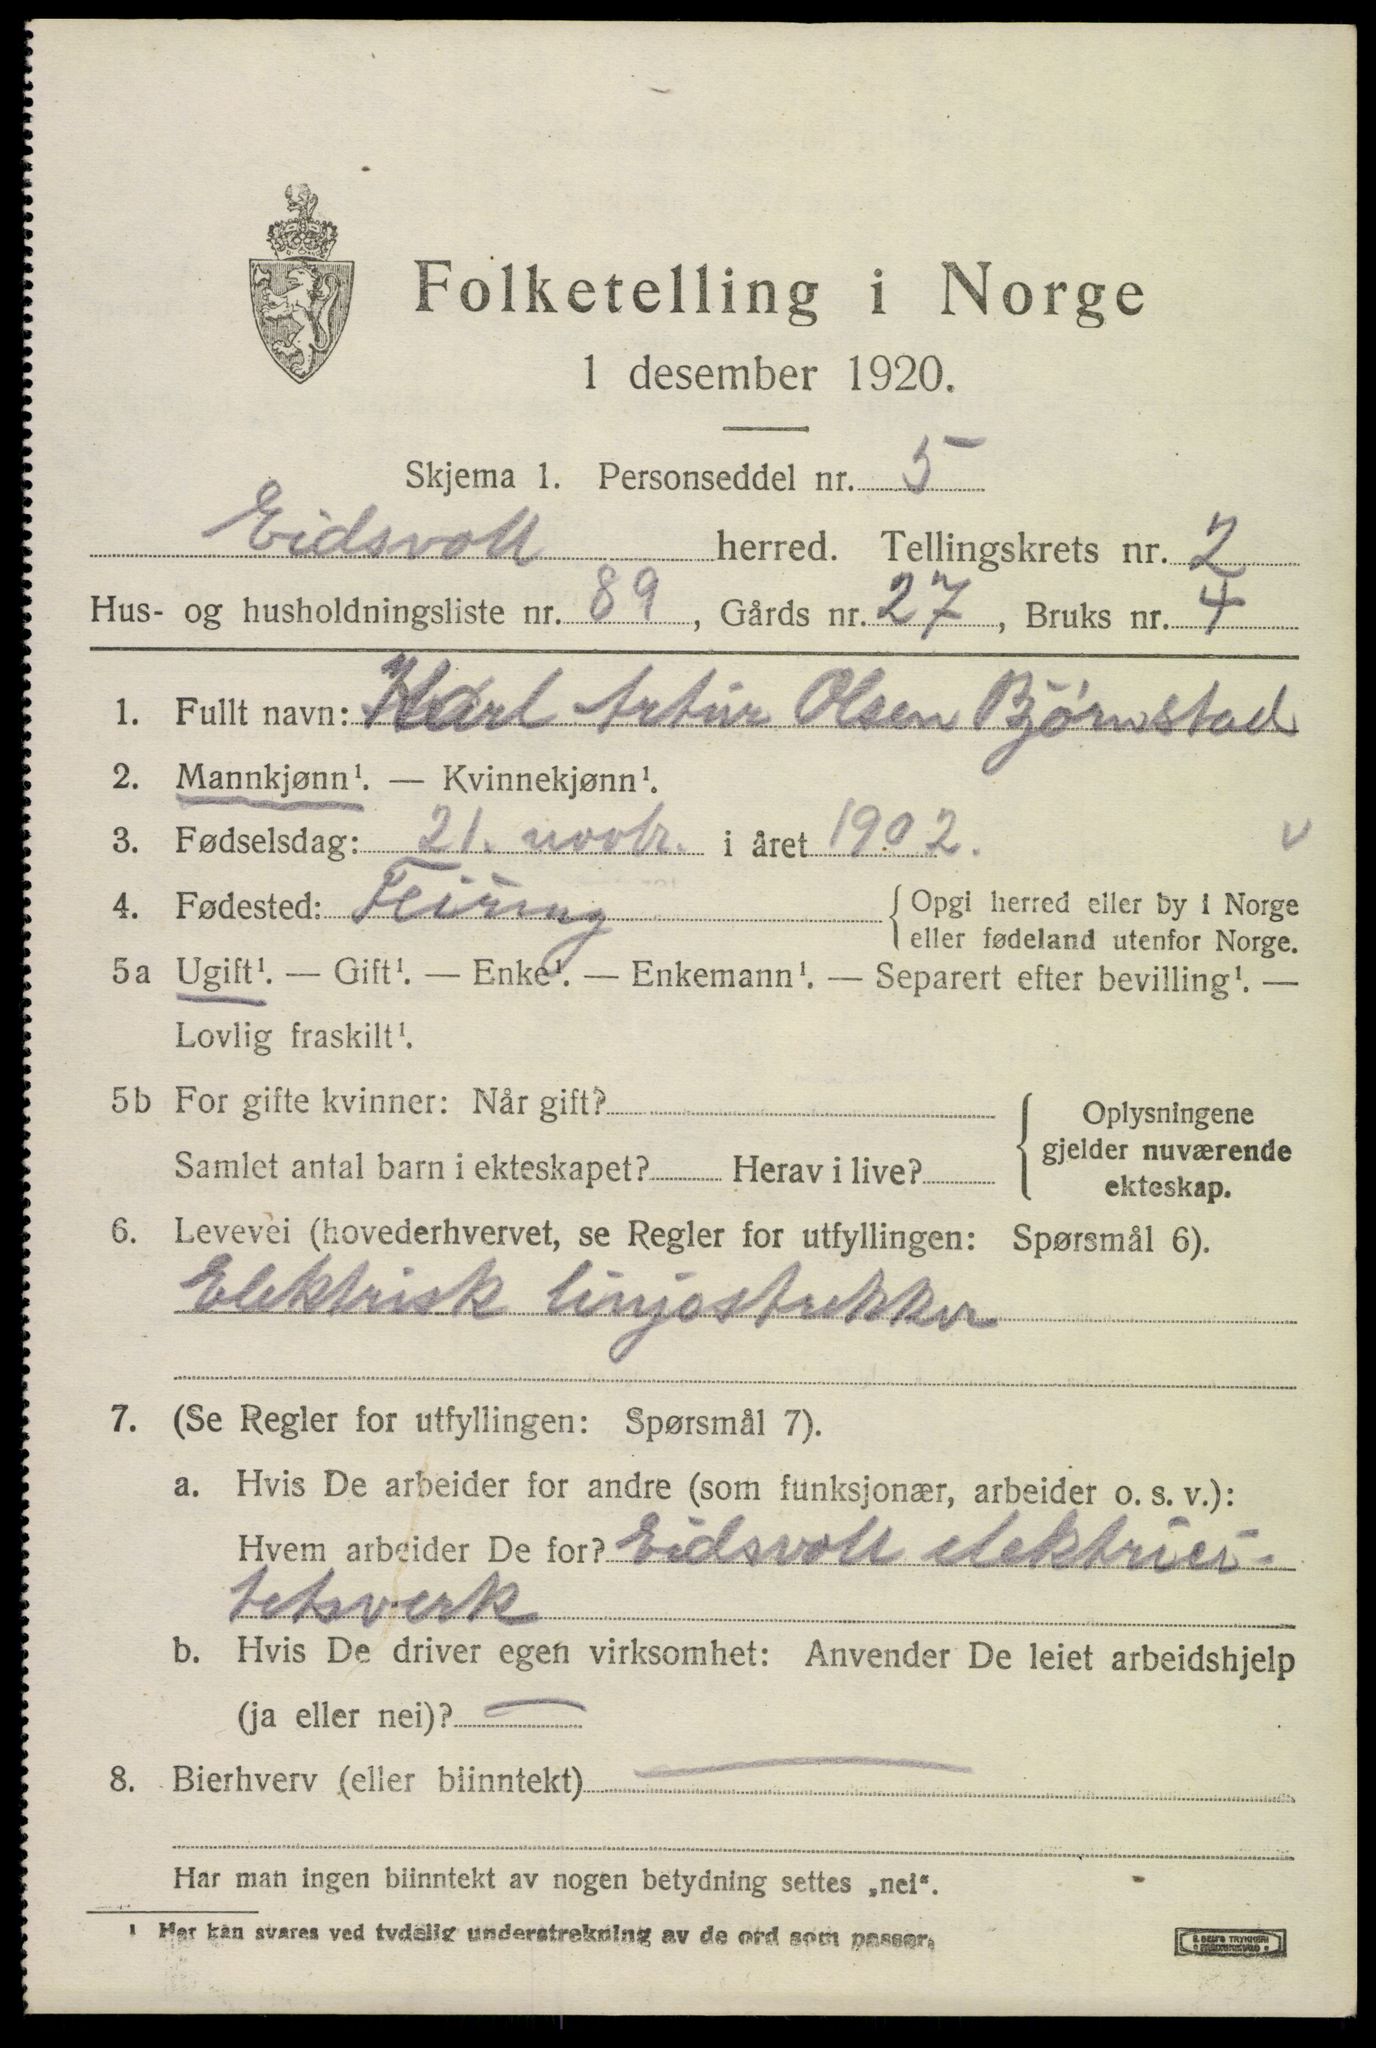 Folketelling i Norge
1 desember 1920.
Skjema 1. Personseddel nr. 5
Eidsvoll herred. Tellingskrets nr. 2
Hus- og husholdningsliste nr. 89, Gårds nr. 27, Bruks nr. 4
1. Fullt navn: Karl Artur Olsen Bjørnstad
2. Mannkjønn¹. — Kvinnekjønn¹.
3. Fødselsdag: 21. novbr. i året 1902. v
4. Fødested: Feiring { Opgi herred eller by i Norge
eller fødeland utenfor Norge.
5a Ugift¹. — Gift¹. — Enke¹. — Enkemann¹. — Separert efter bevilling¹. —
Lovlig fraskilt¹.
5b For gifte kvinner: Når gift?
Samlet antal barn i ekteskapet? Herav i live?
Oplysningene
gjelder nuværende
ekteskap.
6. Levevei (hovederhvervet, se Regler for utfyllingen: Spørsmål 6).
Elektrisk linjestrekker
7. (Se Regler for utfyllingen: Spørsmål 7).
a. Hvis De arbeider for andre (som funksjonær, arbeider o. s. v.):
Hvem arbeider De for? Eidsvoll elektrici-
tetsverk
b. Hvis De driver egen virksomhet: Anvender De leiet arbeidshjelp
(ja eller nei)? —
8. Bierhverv (eller biinntekt) —
Har man ingen biinntekt av nogen betydning settes „nei“.
¹ Her kan svares ved tydelig understrekning av de ord som passer.